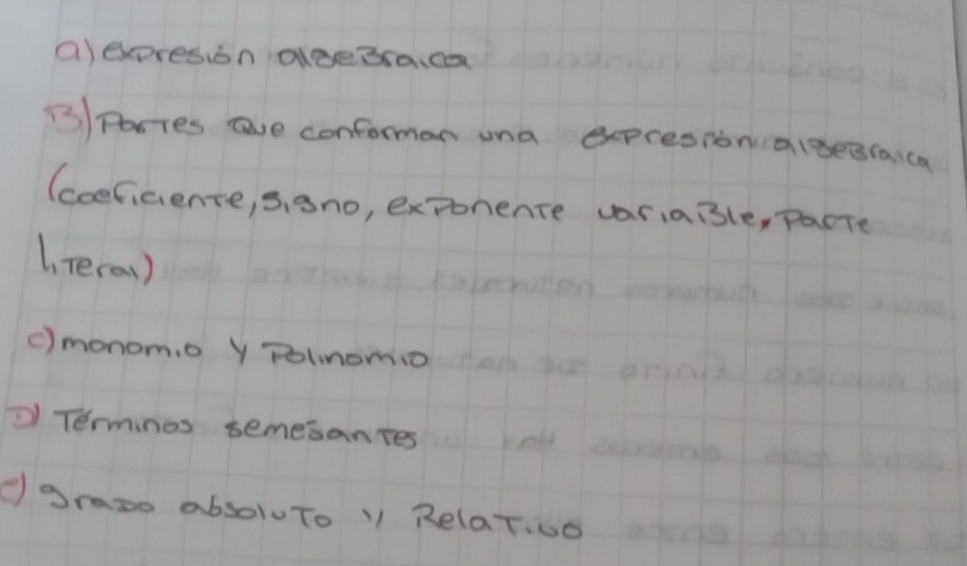 a) expresión algeBraica
B) Partes Que conforman una expresión algeBraica
(coeficiente, signo, exponente variaBle, parte
literal)
c) monomio y Polinomio
D) Términos semejantes
e) grado absoluto y Relativo